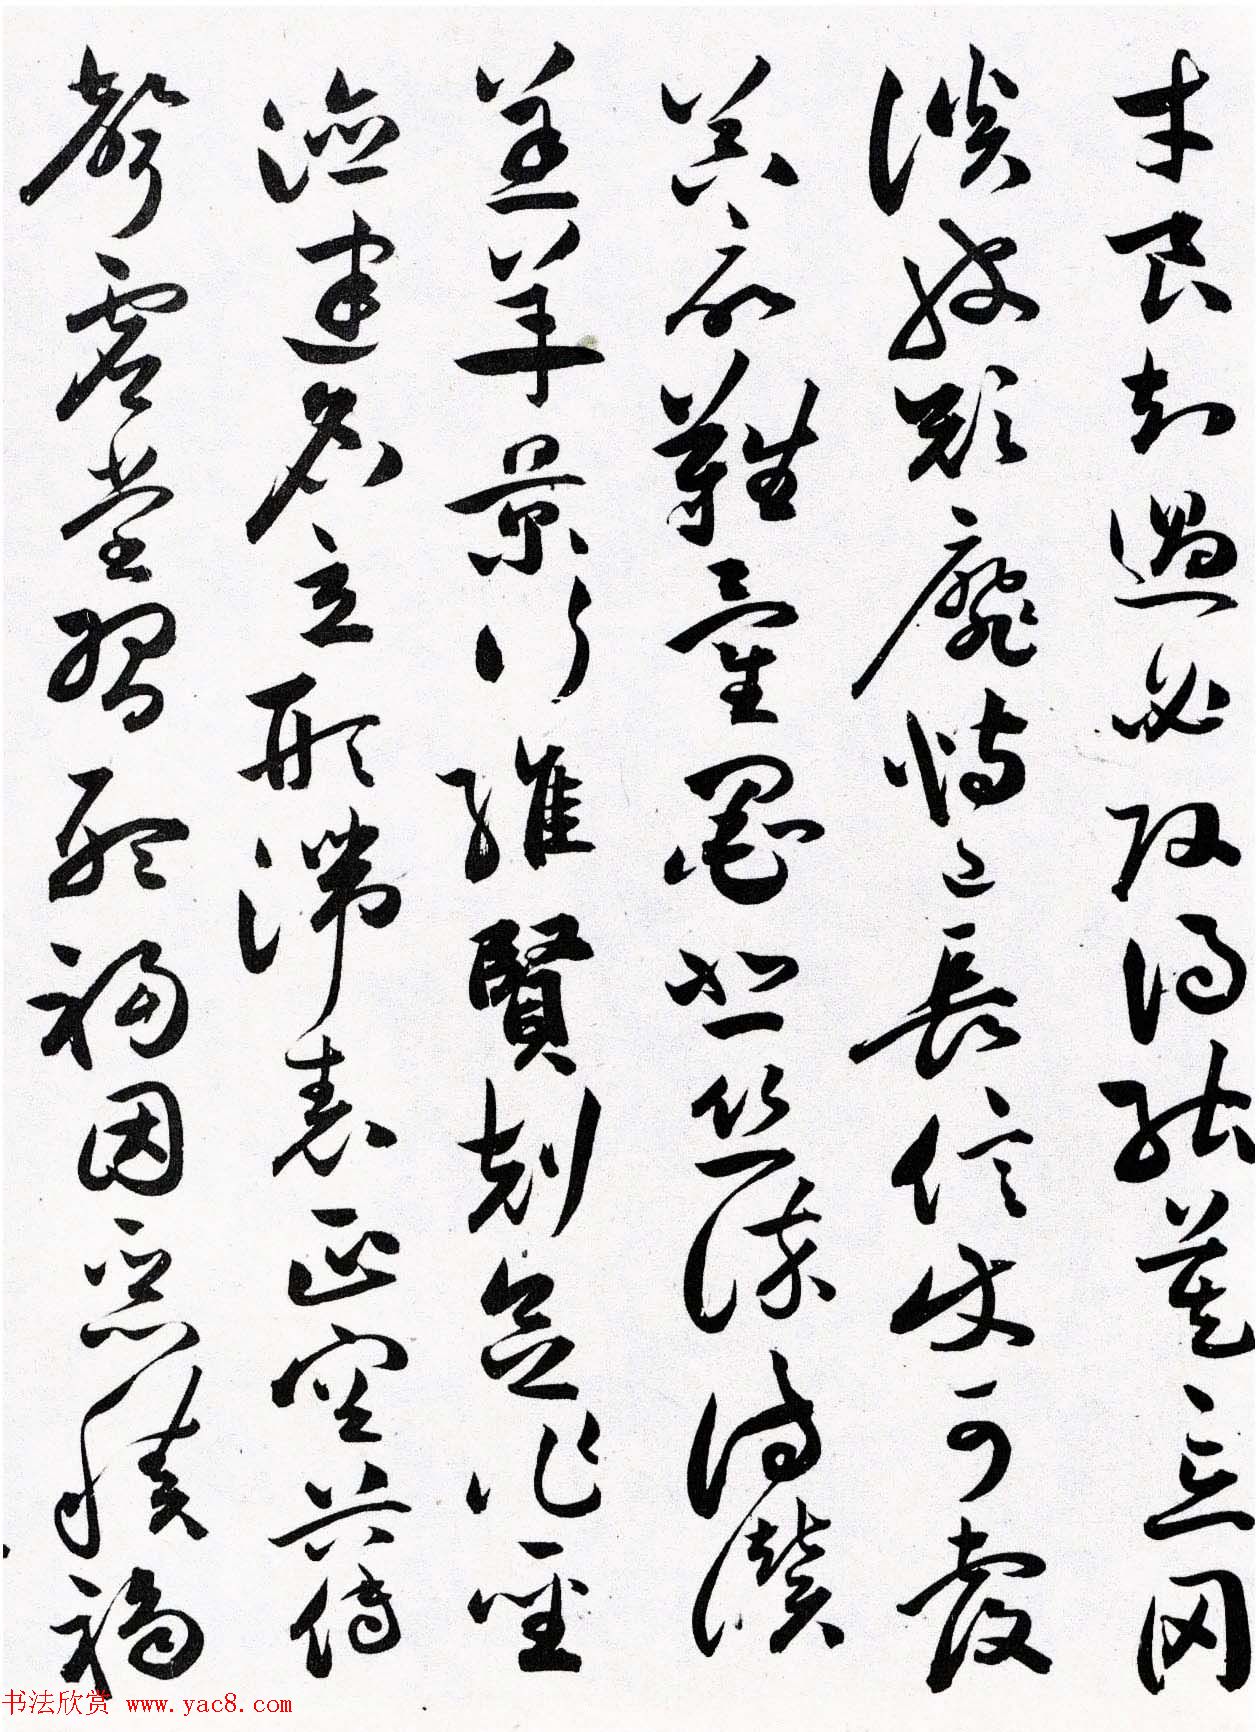 才良知過必改得能莫忘罔
談彼短靡恃己長信使可覆
器欲難量墨悲絲染詩讚
羔羊景行維賢剋念作聖
德建名立形端表正空谷傳
聲虛堂習聽禍因惡積福
书法欣赏 www.yac8.com